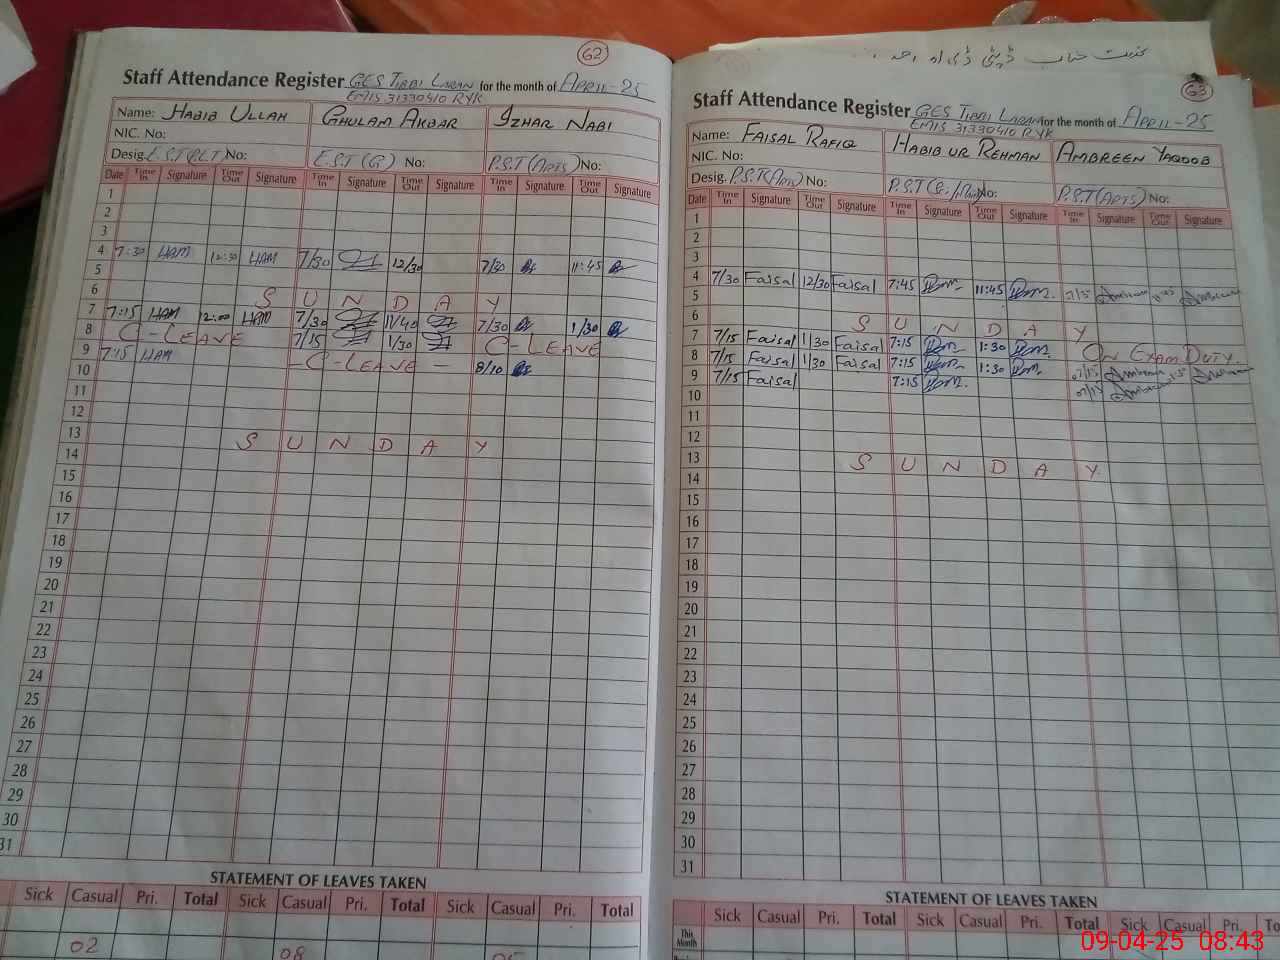 62
Staff Attendance Register GES TIBBI LARAN for the month of APRIL-25
EMIS 31330410 RYK
Name: HABIB ULLAH GHULAM AKBAR IZHAR NABI
NIC. No:
Desig. E.S.T No: E.S.T (G) No: P.S.T (ARTS) No:
Date Time In Signature Time Out Signature Time In Signature Time Out Signature Time In Signature Time Out Signature
1
2
3
4 7:30 HAM 12:30 HAM 7/30 12/30 7/30 11:45
5
6 S U N D A Y
7 7:15 HAM 12:00 HAM 7/30 11/40 7/30 1/30
8 C-LEAVE 7/15 1/30 C-LEAVE
9 7:15 HAM -C-LEAVE - 8/10
10
11
12
13 S U N D A Y
14
15
16
17
18
19
20
21
22
23
24
25
26
27
28
29
30
31
STATEMENT OF LEAVES TAKEN
Sick Casual Pri. Total Sick Casual Pri. Total Sick Casual Pri. Total
02 08
63
Staff Attendance Register GES TIBBI LARAN for the month of APRIL-25
EMIS 31330410 RYK
Name: FAISAL RAFIQ HABIB UR REHMAN AMBREEN YAQOOB
NIC. No:
Desig. P.S.T (Arts) No: P.S.T No: P.S.T (ARTS) No:
Date Time In Signature Time Out Signature Time In Signature Time Out Signature Time In Signature Time Out Signature
1
2
3
4 7/30 Faisal 12/30 Faisal 7:45 11:45
5
6 S U N D A Y
7 7/15 Faisal 1/30 Faisal 7:15 1:30 ON EXAM DUTY.
8 7/15 Faisal 1/30 Faisal 7:15 1:30 07/15
9 7/15 Faisal 7:15 07/15
10
11
12
13 S U N D A Y
14
15
16
17
18
19
20
21
22
23
24
25
26
27
28
29
30
31
STATEMENT OF LEAVES TAKEN
Sick Casual Pri. Total Sick Casual Pri. Total Sick Casual Pri. To
This Month
09-04-25 08:43